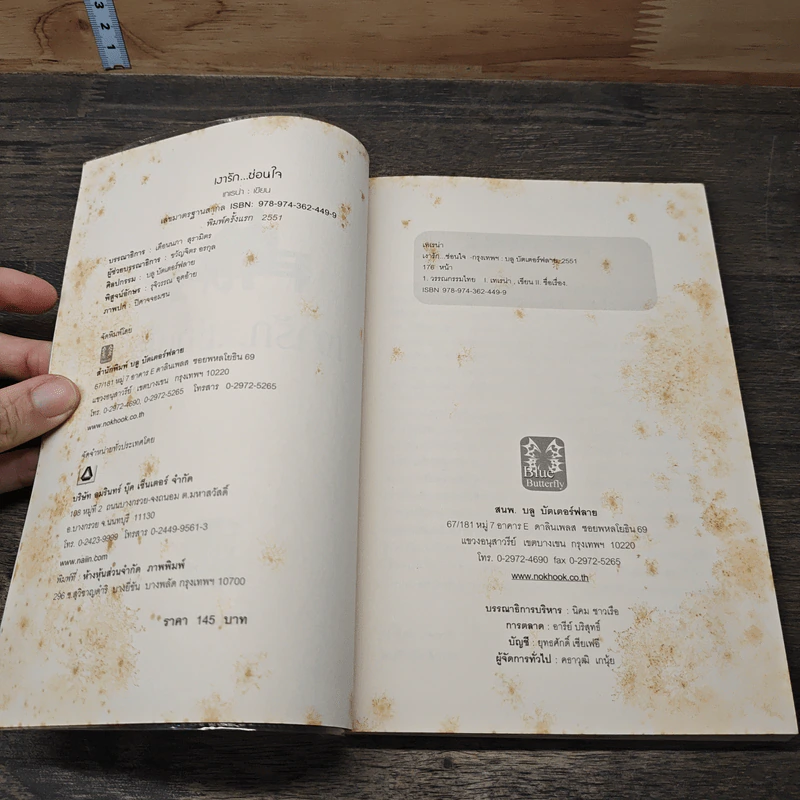 3 2 1
เงารัก...ซ่อนใจ
เทเรน่า : เขียน
เลขมาตรฐานสากล ISBN: 978-974-362-449-9
พิมพ์ครั้งแรก 2551
บรรณาธิการ : เดือนนภา สุรามิตร
ผู้ช่วยบรรณาธิการ : ขวัญจิตร อรกุล
ศิลปกรรม : บลู บัตเตอร์ฟลาย
พิสูจน์อักษร : รุจิวรรณ อุดอ้าย
ภาพปก : ปีศาจจอมซน
จัดพิมพ์โดย
สำนักพิมพ์ บลู บัตเตอร์ฟลาย
67/181 หมู่ 7 อาคาร E ดาลินเพลส ซอยพหลโยธิน 69
แขวงอนุสาวรีย์ เขตบางเขน กรุงเทพฯ 10220
โทร. 0-2972-4690, 0-2972-5265 โทรสาร 0-2972-5265
www.nokhook.co.th
จัดจำหน่ายทั่วประเทศโดย
บริษัท อมรินทร์ บุ๊ค เซ็นเตอร์ จำกัด
108 หมู่ที่ 2 ถนนบางกรวย-จงถนอม ต.มหาสวัสดิ์
อ.บางกรวย จ.นนทบุรี 11130
โทร. 0-2423-9999 โทรสาร 0-2449-9561-3
www.naiin.com
พิมพ์ที่ : ห้างหุ้นส่วนจำกัด ภาพพิมพ์
296 ซ.สุวิชาญดำริ บางยี่ขัน บางพลัด กรุงเทพฯ 10700
ราคา 145 บาท
เทเรน่า
เงารัก...ซ่อนใจ -กรุงเทพฯ : บลู บัตเตอร์ฟลาย, 2551
176 หน้า
1. วรรณกรรมไทย I. เทเรน่า , เขียน II. ชื่อเรื่อง.
ISBN 978-974-362-449-9
Blue
Butterfly
สนพ. บลู บัตเตอร์ฟลาย
67/181 หมู่ 7 อาคาร E ดาลินเพลส ซอยพหลโยธิน 69
แขวงอนุสาวรีย์ เขตบางเขน กรุงเทพฯ 10220
โทร. 0-2972-4690 fax 0-2972-5265
www.nokhook.co.th
บรรณาธิการบริหาร : นิคม ชาวเรือ
การตลาด : อารีย์ บริสุทธิ์
บัญชี : ยุทธศักดิ์ เซียเฟอี
ผู้จัดการทั่วไป : คธาวุฒิ เกนุ้ย